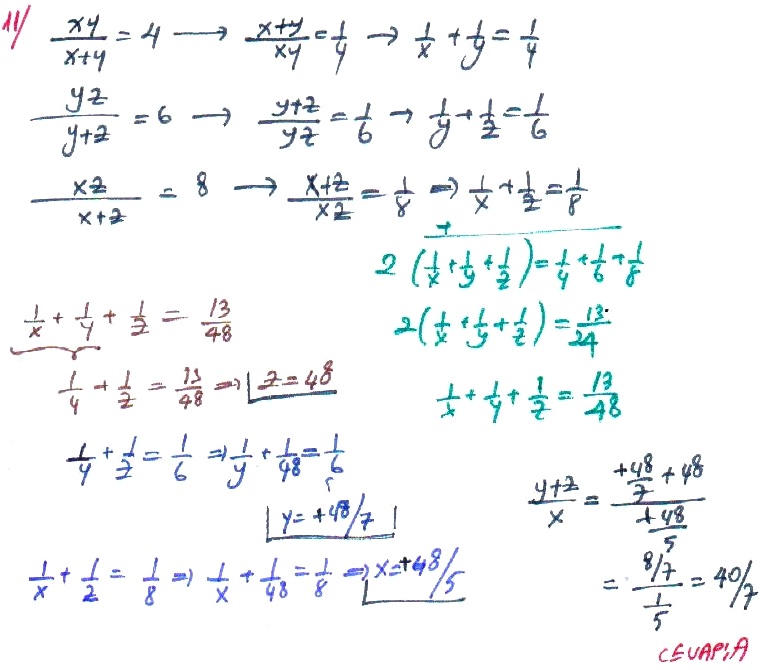 11/ xy/(x+y) = 4 → (x+y)/xy = 1/4 → 1/x + 1/y = 1/4
yz/(y+z) = 6 → (y+z)/yz = 1/6 → 1/y + 1/z = 1/6
xz/(x+z) = 8 → (x+z)/xz = 1/8 ⇒ 1/x + 1/z = 1/8
+
2(1/x + 1/y + 1/z) = 1/4 + 1/6 + 1/8
2(1/x + 1/y + 1/z) = 13/24
1/x + 1/y + 1/z = 13/48
1/x + 1/y + 1/z = 13/48
1/4 + 1/z = 13/48 ⇒ z = 48
1/y + 1/z = 1/6 ⇒ 1/y + 1/48 = 1/6
y = +48/7
1/x + 1/z = 1/8 ⇒ 1/x + 1/48 = 1/8 ⇒ x = +48/5
(y+z)/x = (+48/7 + 48)/(+48/5)
= (8/7)/(1/5) = 40/7
CEVAP: A